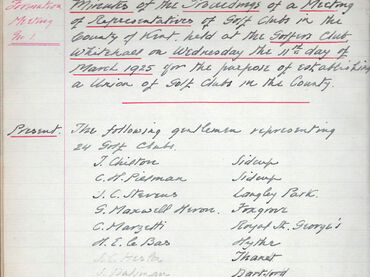 Formation
Meeting
No. 1
Minutes of the Proceedings of a Meeting
of Representatives of Golf Clubs in the
County of Kent, held at the Golfers Club,
Whitehall on Wednesday the 11th day of
March 1925 for the purpose of establishing
a Union of Golf Clubs in the County.
Present. The following gentlemen representing
24 Golf Clubs.
J. Chiston Sidcup
C. H. Sidcup
J. C. Stevens Langley Park.
G. Maxwell Heron. Foxgrove
C. Marzetti Royal St. George's
N. E. Le Bas Hythe
J. C. Thanet
J. Dartford